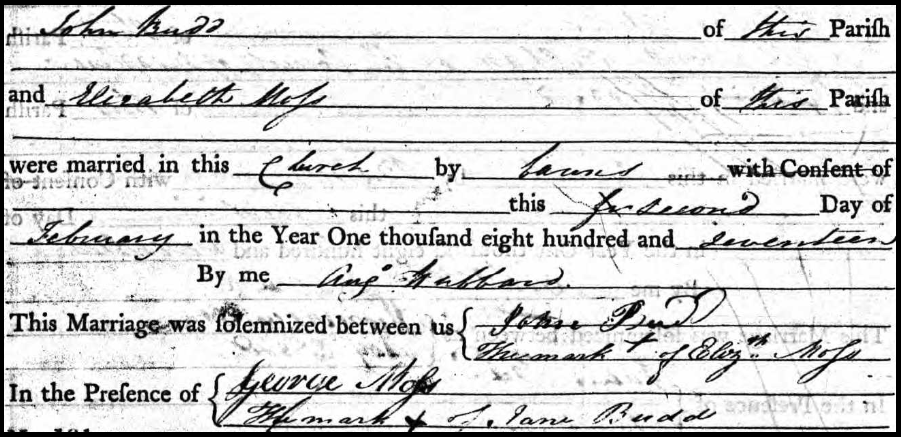 John Budd of this Pariſh
and Elizabeth Moſs of this Pariſh
were married in this Church by banns with Conſent of
this second Day of
February in the Year One thouſand eight hundred and seventeen
By me Augs Hubbard
This Marriage was ſolemnized between us { John Bud
The mark + of Elizth Moſs
In the Preſence of { George Moſs
The mark + of Jane Budd